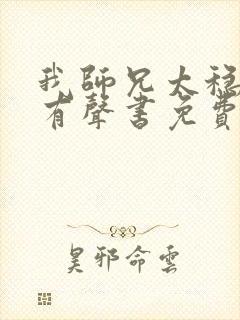 我师兄太稳
有聲書免費
昊邪命雲